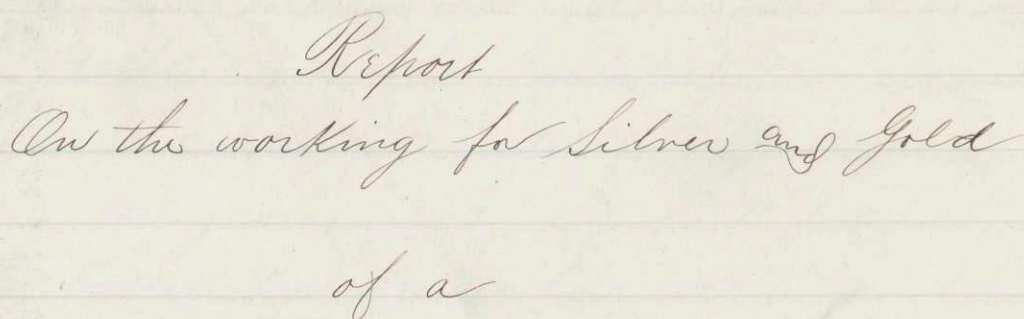 Report
On the working for Silver and Gold
of a